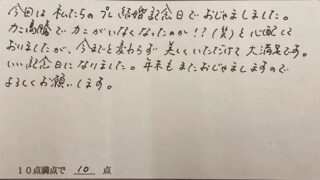 今回は私たちのプレ結婚記念日でおじゃましました。
カニ高騰でカニがいなくなったのか!?(笑)と心配して
おりましたが、今までと変わらず美しくいただけて大満足です。
いい記念日になりました。年末もまたおじゃましますので
よろしくお願いします。
10点満点で 10 点